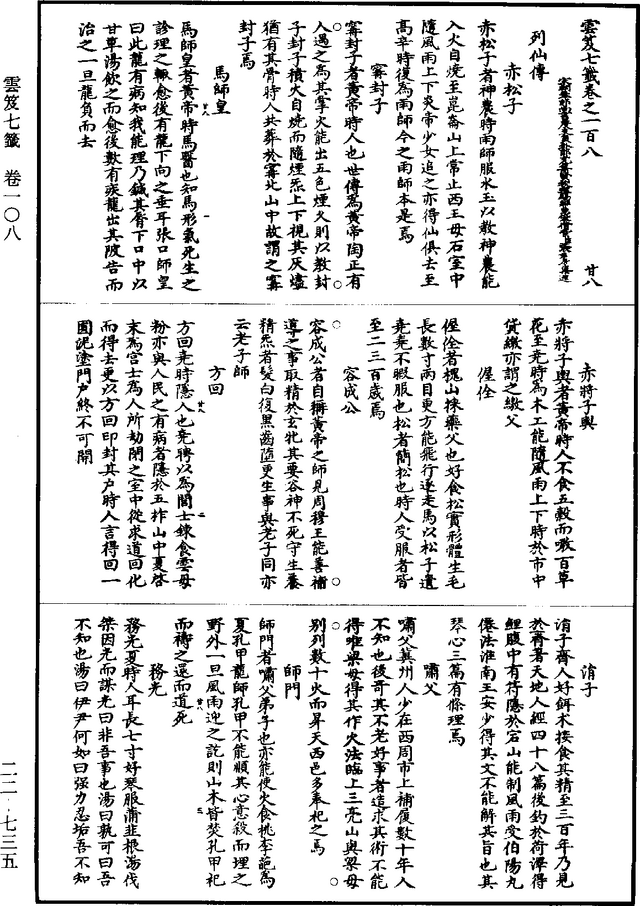 雲笈七籤卷之一百八 廿八
列仙傳
赤松子
赤松子者神農時雨師服水玉以教神農能
入火自燒至崑崙山上常止西王母石室中
隨風雨上下炎帝少女追之亦得仙俱去至
高辛時復為雨師今之雨師本是焉
甯封子
甯封子者黃帝時人也世傳為黃帝陶正有
人過之為其掌火能出五色煙久則以教封
子封子積火自燒而隨煙炁上下視其灰燼
猶有其骨時人共葬於甯北山中故謂之甯
封子焉
馬師皇
馬師皇者黃帝時馬醫也知馬形氣死生之
診理之輒愈後有龍下向之垂耳張口師皇
曰此龍有病知我能理乃鍼其脣下口中以
甘草湯飲之而愈後數有疾龍出其陂告而
治之一旦龍負而去
赤將子輿
赤將子輿者黃帝時人不食五穀而噉百草
花至堯時為木工能隨風雨上下時於市中
貨繳亦謂之繳父
偓佺
偓佺者槐山採藥父也好食松實形體生毛
長數寸兩目更方能飛行逐走馬以松子遺
堯堯不暇服也松者簡松也時人受服者皆
至二三百歲焉
容成公
容成公者自稱黃帝之師見周穆王能善補
導之事取精於玄牝其要谷神不死守生養
精炁者髮白復黑齒墮更生事與老子同亦
云老子師
方回
方回堯時隱人也堯聘以為閭士鍊食雲母
粉亦與人民之有病者隱於五柞山中夏啓
末為宮士為人所劫閉之室中從求道回化
而得去更以方回印封其戶時人言得回一
圓泥塗門戶終不可開
涓子
涓子齊人好餌术接食其精至三百年乃見
於齊著天地人經四十八篇後釣於荷澤得
鯉腹中有符隱於宕山能制風雨受伯陽九
僊法淮南王安少得其文不能解其旨也其
琴心三篇有條理焉
嘯父
嘯父冀州人少在西周市上補履數十年人
不知也後奇其不老好事者造求其術不能
得唯梁母得其作火法臨上三亮山與梁母
别列數十火而昇天西邑多奉祀之焉
師門
師門者嘯父弟子也亦能使火食桃李葩為
夏孔甲龍師孔甲不能順其心意殺而埋之
野外一旦風雨迎之訖則山木皆焚孔甲祀
而禱之還而道死
務光
務光夏時人耳長七寸好琴服蒲韭根湯伐
桀因光而謀光曰非吾事也湯曰孰可曰吾
不知也湯曰伊尹何如曰强力忍垢吾不知
雲笈七籤 卷一〇八
二二·七三五